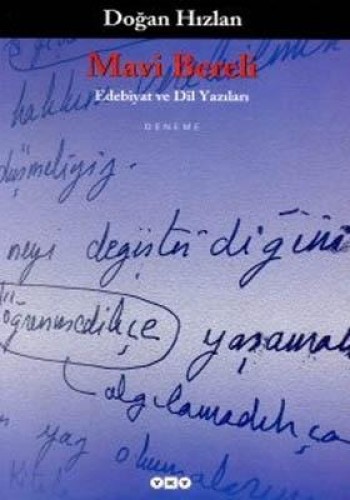 Doğan Hızlan
Mavi Bereli
Edebiyat ve Dil Yazıları
DENEME
hakkın
düşmeliyiz.
neyi değiştirdiğini
öğrenmedikçe
yaşamak
algılamadıkça
yaz okumaların
YKY